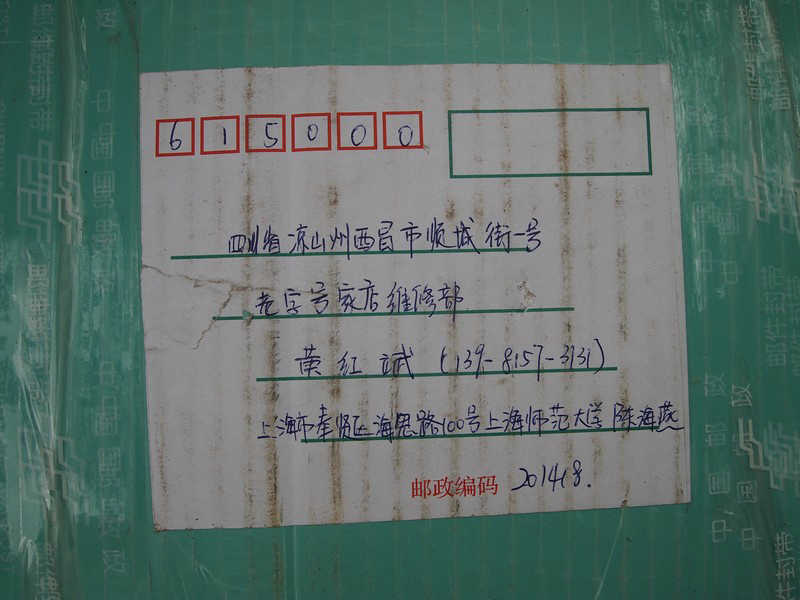 615000
四川省凉山州西昌市顺城街一号
老字号家店维修部
黄红斌(139-8157-3131)
上海市奉贤区海思路100号上海师范大学 陈海燕
邮政编码 201418.
中国邮政
中国邮政